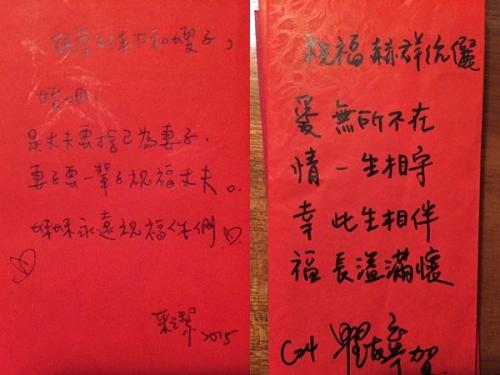 親愛的 和嫂子，
婚姻：
是丈夫要捨己為妻子.
妻子要一輩子祝福丈夫。
妹妹永遠祝福你們
2015
祝福赫祥伉儷
愛 無所不在
情 一生相守
幸 此生相伴
福 長溢滿懷
瞿友寧 賀